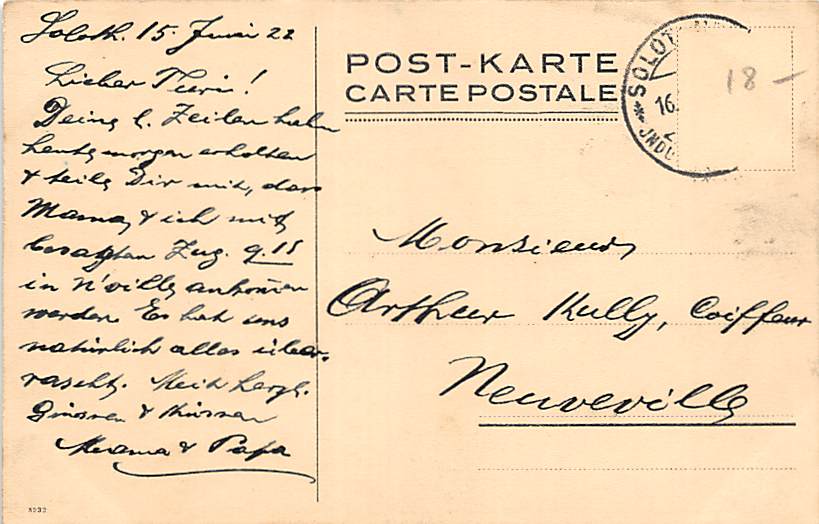 Soloth. 15. Juni 22
Lieber Turi!
Deine l. Zeilen habe
heute morgen erhalten
& teile Dir mit, dass
Mama & ich mit
besagten Zug 9.15
in N'ville ankom̄en
werden Es hat uns
natürlich alles über-
rascht. Mit herzl.
Grüssen & Küssen
Mama & Papa
8232
POST-KARTE
CARTE POSTALE
SOLOT
16.
2
JNDU
18 –
Monsieur
Arthur Kully, Coiffeur
Neuveville